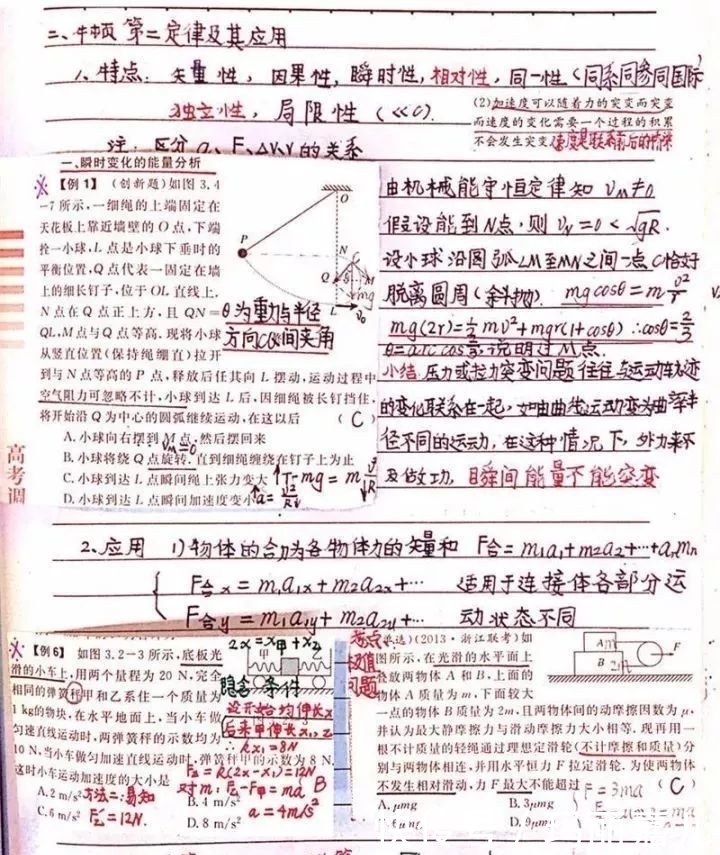 二、牛顿第二定律及其应用
1、特点: 矢量性, 因果性, 瞬时性, 相对性, 同一性(同系同参同国际)
独立性, 局限性(<<c).
(2)加速度可以随着力的突变而突变
而速度的变化需要一个过程的积累
不会发生突变
注: 区分a、F、ΔV、V的关系
一、瞬时变化的能量分析
【例1】 (创新题)如图3.4
-7所示,一细绳的上端固定在
天花板上靠近墙壁的O点,下端
拴一小球,L点是小球下垂时的
平衡位置,Q点代表一固定在墙
上的细长钉子,位于OL直线上,
N点在Q点正上方,且QN=
QL,M点与Q点等高.现将小球
从竖直位置(保持绳绷直)拉开
到与N点等高的P点,释放后任其向L摆动,运动过程中
空气阻力可忽略不计,小球到达L后,因细绳被长钉挡住,
将开始沿Q为中心的圆弧继续运动,在这以后 (C)
A.小球向右摆到M点,然后摆回来
B.小球将绕Q点旋转,直到细绳缠绕在钉子上为止
C.小球到达L点瞬间绳上张力变大
D.小球到达L点瞬间加速度变小
O
P
N
C
Q
M
mg
L
v₀
θ为重力与半径
方向CQ间夹角
T-mg=m
由机械能守恒定律知 V_M≠0
假设能到N点,则 V_N=0<√gR.
设小球沿圆弧LM至MN之间一点C恰好
脱离圆周(斜抛) mgcosθ=m v²/r
mg(2r)=½mv²+mgr(1+cosθ) ∴cosθ=2/3
θ=arc cos 2/3,说明过M点.
小结:压力或拉力突变问题往往与运动轨迹
的变化联系在一起,如由曲线运动变为曲率半
径不同的运动,在这种情况下,外力来不
及做功,瞬间能量不能突变
高考调
2、应用 1)物体的合力为各物体力的矢量和 F合=m₁a₁+m₂a₂+…+aₙmₙ
F合x=m₁a₁x+m₂a₂x+… 适用于连接体各部分运
F合y=m₁a₁y+m₂a₂y+… 动状态不同
【例6】 如图3.2-3所示,底板光
滑的小车上,用两个量程为20 N,完全
相同的弹簧秤甲和乙系住一个质量为
1 kg的物块,在水平地面上,当小车做
匀速直线运动时,两弹簧秤的示数均为
10 N,当小车做匀加速直线运动时,弹簧秤甲的示数为8 N,
这时小车运动加速度的大小是 B
A.2 m/s² B.4 m/s²
C.6 m/s² D.8 m/s²
2x=x甲+x乙
甲 乙
隐含条件
设开始均伸长x
后来甲伸长x₁,
∴kx₁=8N
F乙=k(2x-x₁)=12N
对m:F乙-F甲=ma
a=4m/s²
方法二:易知
F乙=12N.
考点:
极值
问题
选)(2013·浙江联考)如
图所示,在光滑的水平面上
叠放两物体A和B,上面的
物体A质量为m,下面较大
一点的物体B质量为2m,且两物体间的动摩擦因数为μ,
并认为最大静摩擦力与滑动摩擦力大小相等.现再用一
根不计质量的轻绳通过理想定滑轮(不计摩擦和质量)分
别与两物体相连,并用水平恒力F拉定滑轮.为使两物体
不发生相对滑动,力F最大不能超过 (C)
A.μmg B.3μmg
D.9μmg
A m
B 2m
F
F=3ma